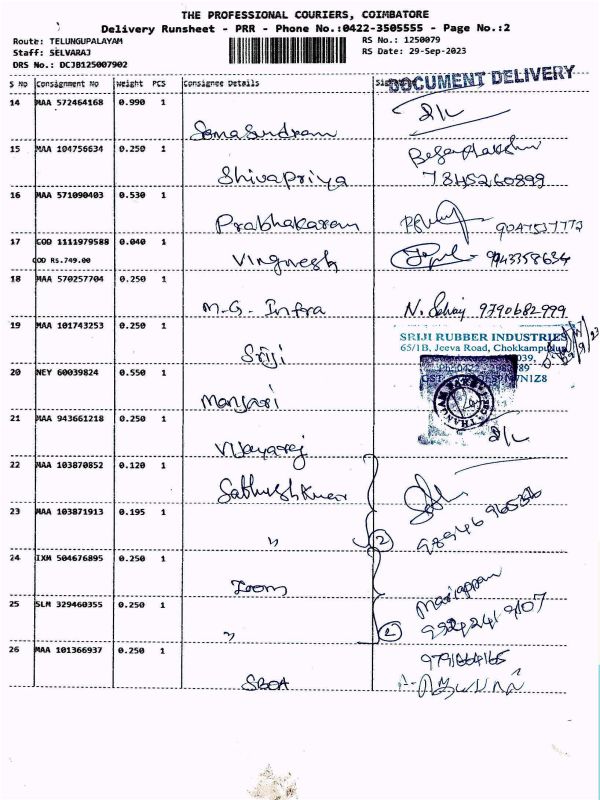 THE PROFESSIONAL COURIERS, COIMBATORE
Delivery Runsheet - PRR - Phone No.:0422-3505555 - Page No.:2
Route: TELUNGUPALAYAM RS No.: 1250079
Staff: SELVARAJ RS Date: 29-Sep-2023
DRS No.: DCJB125007902
DOCUMENT DELIVERY
S No Consignment No Weight PCS Consignee Details
14 MAA 572464168 0.990 1
Somasundram
15 MAA 104756634 0.250 1
Shivapriya 7845260899
16 MAA 571090403 0.530 1
Prabhakaran 9047537773
17 COD 1111979588 0.040 1
COD Rs.749.00 Vingnesh 9943358634
18 MAA 570257704 0.250 1
M.G. Infra 9790682999
19 MAA 101743253 0.250 1
SRIJI RUBBER INDUSTRIES
65/1B, Jeeva Road, Chokkampudur
Sriji
20 NEY 60039824 0.550 1
Manjari
21 MAA 943661218 0.250 1
Vijayaraj
22 MAA 103870852 0.120 1
23 MAA 103871913 0.195 1
" 2
24 IXM 504676895 0.250 1
Zoom Mariappan
25 SLM 329460355 0.250 1
" 2
26 MAA 101366937 0.250 1
9791664165
SBOA